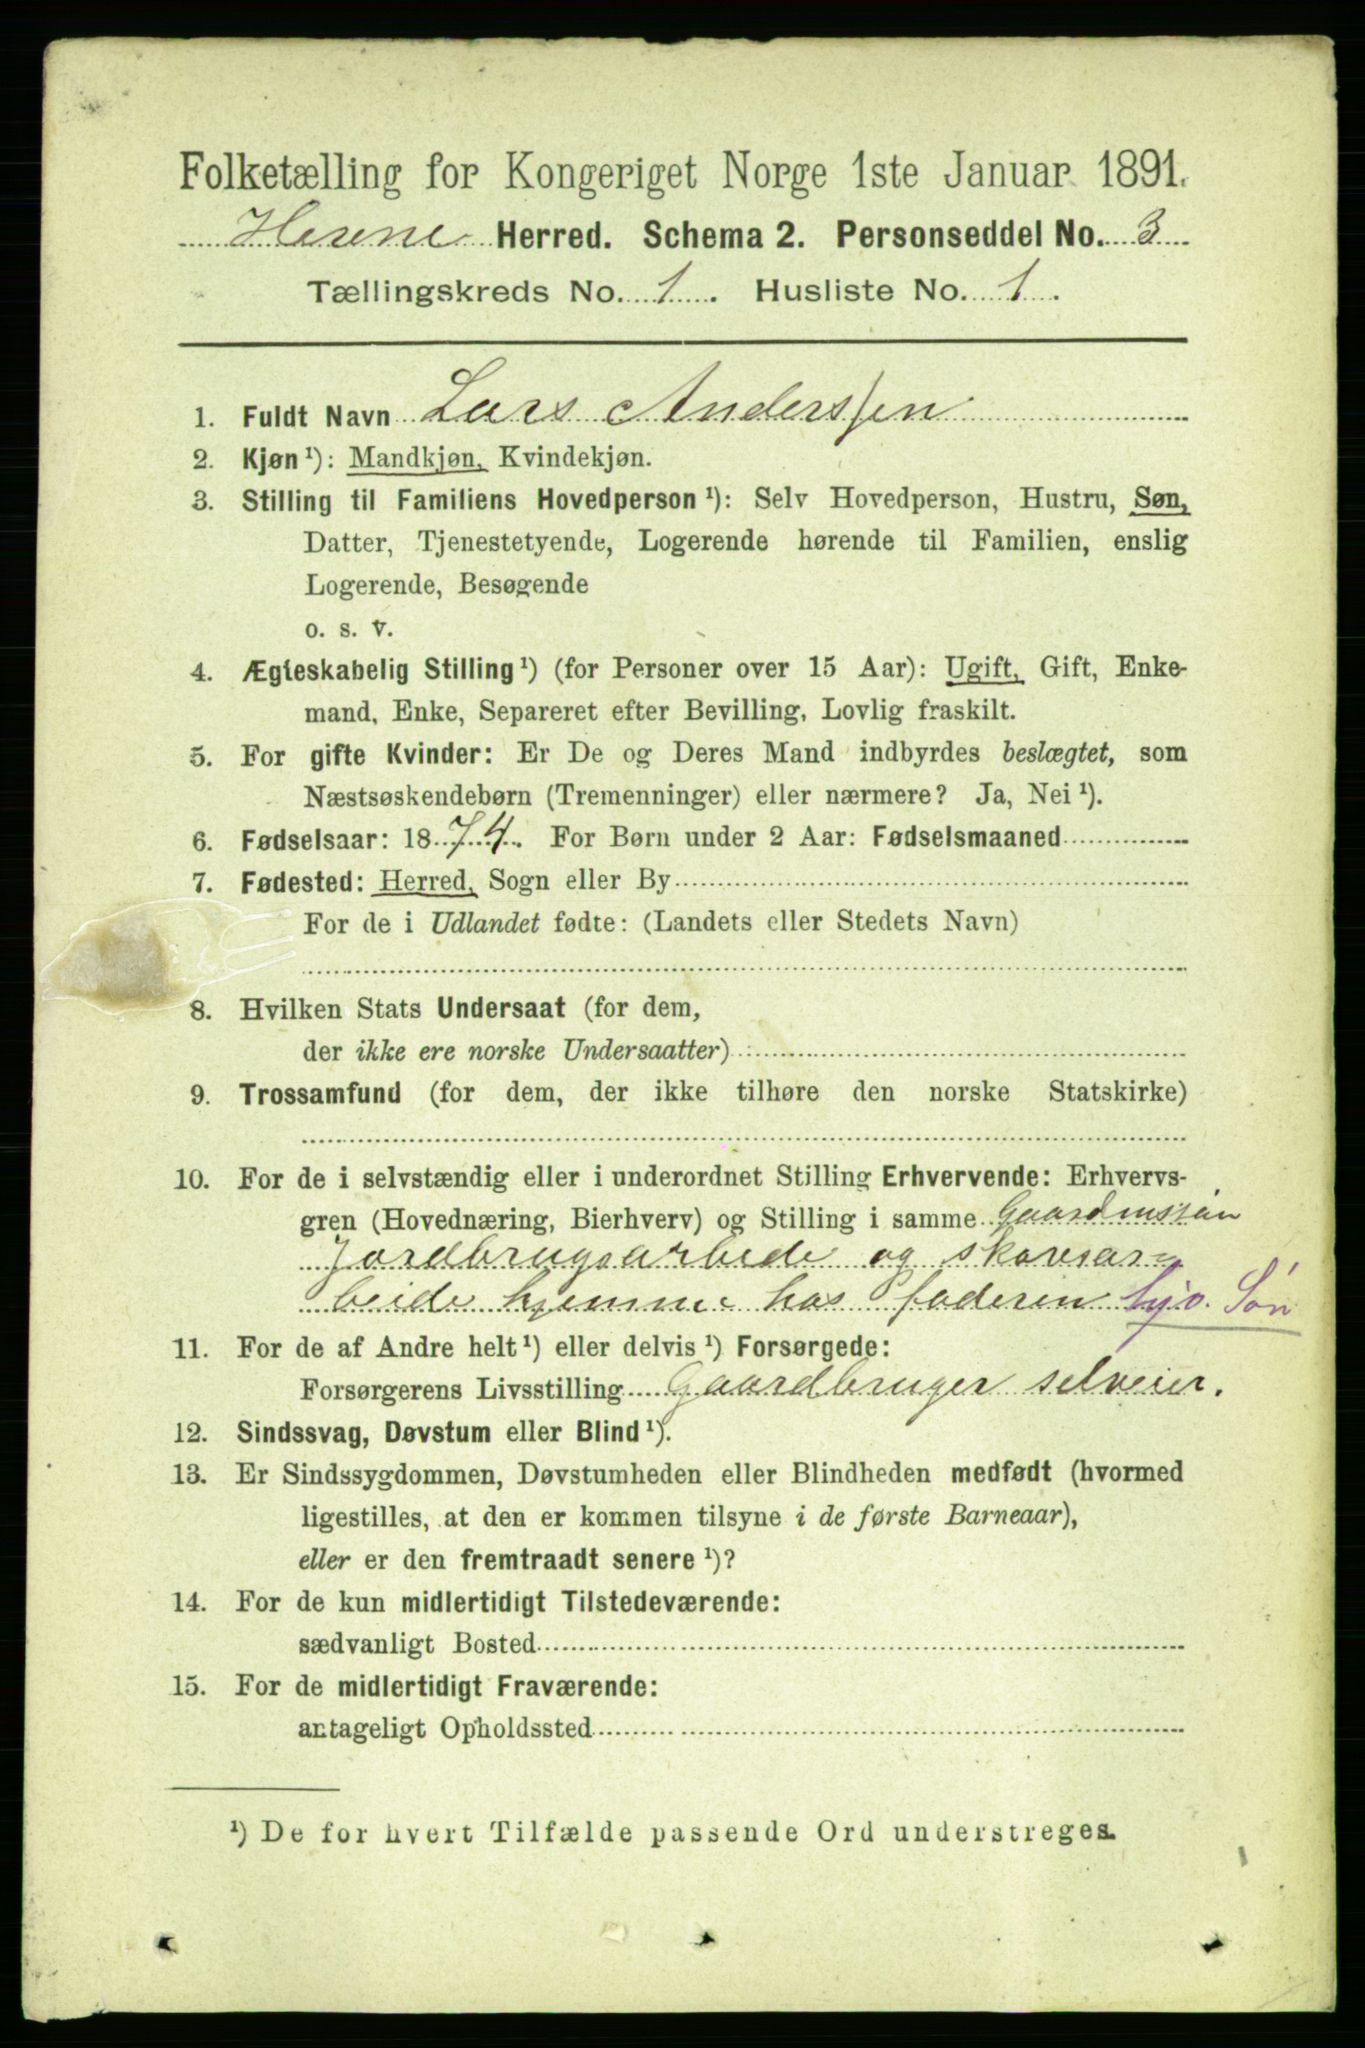 Folketælling for Kongeriget Norge 1ste Januar 1891.
Herene Herred. Schema 2. Personseddel No. 3
Tællingskreds No. 1. Husliste No. 1.
1. Fuldt Navn Lars Anderssen
2. Kjøn ¹): Mandkjøn, Kvindekjøn.
3. Stilling til Familiens Hovedperson ¹): Selv Hovedperson, Hustru, Søn,
Datter, Tjenestetyende, Logerende hørende til Familien, enslig
Logerende, Besøgende
o. s. v.
4. Ægteskabelig Stilling ¹) (for Personer over 15 Aar): Ugift, Gift, Enke-
mand, Enke, Separeret efter Bevilling, Lovlig fraskilt.
5. For gifte Kvinder: Er De og Deres Mand indbyrdes beslægtet, som
Næstsøskendebørn (Tremenninger) eller nærmere? Ja, Nei ¹).
6. Fødselsaar: 1874. For Børn under 2 Aar: Fødselsmaaned
7. Fødested: Herred, Sogn eller By
For de i Udlandet fødte: (Landets eller Stedets Navn)
8. Hvilken Stats Undersaat (for dem,
der ikke ere norske Undersaatter)
9. Trossamfund (for dem, der ikke tilhøre den norske Statskirke)
10. For de i selvstændig eller i underordnet Stilling Erhvervende: Erhvervs-
gren (Hovednæring, Bierhverv) og Stilling i samme Gaardmssøn
Jordbrugsarbeide og skovsar-
beide hjemme hos faderen hjv. Søn
11. For de af Andre helt ¹) eller delvis ¹) Forsørgede:
Forsørgerens Livsstilling Gaardbruger selveier.
12. Sindssvag, Døvstum eller Blind ¹).
13. Er Sindssygdommen, Døvstumheden eller Blindheden medfødt (hvormed
ligestilles, at den er kommen tilsyne i de første Barneaar),
eller er den fremtraadt senere ¹)?
14. For de kun midlertidigt Tilstedeværende:
sædvanligt Bosted
15. For de midlertidigt Fraværende:
antageligt Opholdssted
¹) De for hvert Tilfælde passende Ord understreges.